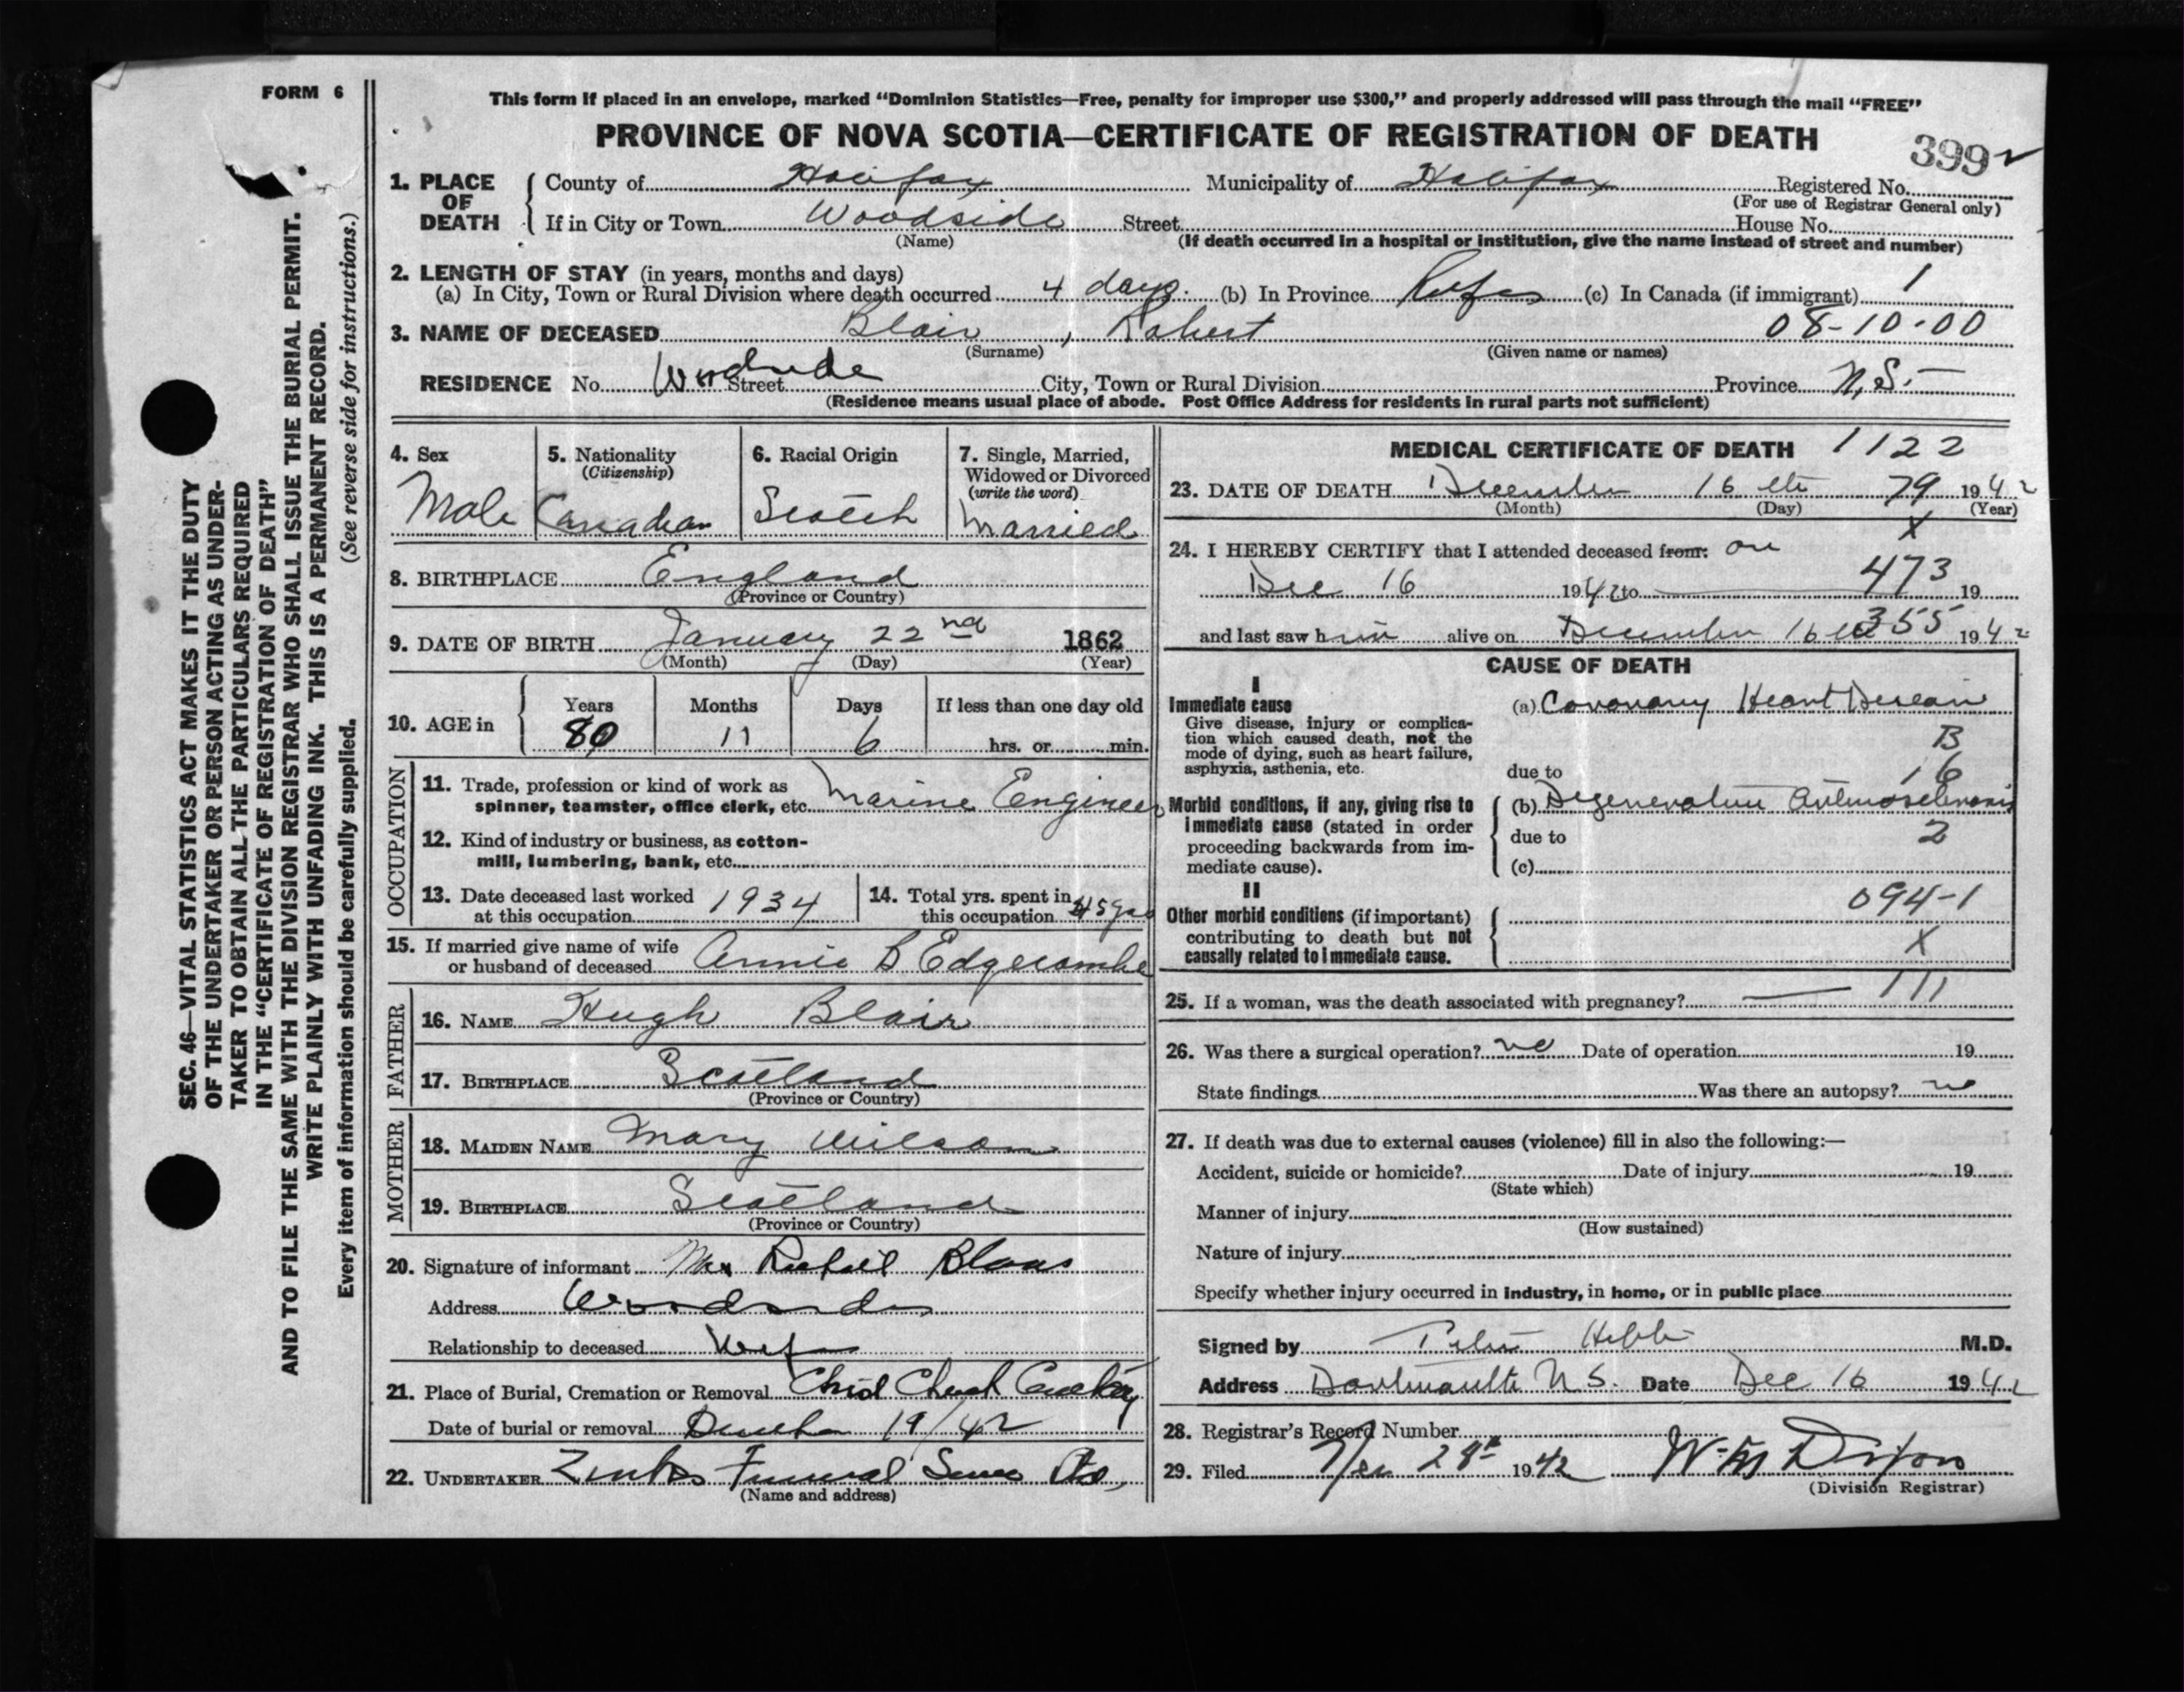 FORM 6
This form if placed in an envelope, marked “Dominion Statistics—Free, penalty for improper use $300,” and properly addressed will pass through the mail “FREE”
PROVINCE OF NOVA SCOTIA—CERTIFICATE OF REGISTRATION OF DEATH
3992
SEC. 46—VITAL STATISTICS ACT MAKES IT THE DUTY
OF THE UNDERTAKER OR PERSON ACTING AS UNDER-
TAKER TO OBTAIN ALL THE PARTICULARS REQUIRED
IN THE “CERTIFICATE OF REGISTRATION OF DEATH”
AND TO FILE THE SAME WITH THE DIVISION REGISTRAR WHO SHALL ISSUE THE BURIAL PERMIT.
WRITE PLAINLY WITH UNFADING INK. THIS IS A PERMANENT RECORD.
Every item of information should be carefully supplied. (See reverse side for instructions.)
1. PLACE OF DEATH
County of Halifax Municipality of Halifax Registered No.
(For use of Registrar General only)
If in City or Town Woodside Street House No.
(Name) (If death occurred in a hospital or institution, give the name instead of street and number)
2. LENGTH OF STAY (in years, months and days)
(a) In City, Town or Rural Division where death occurred 4 days. (b) In Province (c) In Canada (if immigrant) 1
3. NAME OF DECEASED Blair, Robert 08-10-00
(Surname) (Given name or names)
RESIDENCE No. Woodside Street City, Town or Rural Division Province N.S.
(Residence means usual place of abode. Post Office Address for residents in rural parts not sufficient)
4. Sex
Male
5. Nationality
(Citizenship)
Canadian
6. Racial Origin
Scotch
7. Single, Married,
Widowed or Divorced
(write the word)
Married
8. BIRTHPLACE England
(Province or Country)
9. DATE OF BIRTH January 22nd 1862
(Month) (Day) (Year)
10. AGE in
Years Months Days If less than one day old
80 11 6 hrs. or min.
OCCUPATION
11. Trade, profession or kind of work as
spinner, teamster, office clerk, etc. Marine Engineer
12. Kind of industry or business, as cotton-
mill, lumbering, bank, etc.
13. Date deceased last worked
at this occupation 1934
14. Total yrs. spent in
this occupation 45 yrs
15. If married give name of wife
or husband of deceased Annie B Edgecombe
FATHER
16. NAME Hugh Blair
17. BIRTHPLACE Scotland
(Province or Country)
MOTHER
18. MAIDEN NAME Mary Wilson
19. BIRTHPLACE Scotland
(Province or Country)
20. Signature of informant Mrs Robert Blair
Address Woodside
Relationship to deceased Wife
21. Place of Burial, Cremation or Removal Christ Church Cemetery
Date of burial or removal December 19/42
22. UNDERTAKER Funeral
(Name and address)
MEDICAL CERTIFICATE OF DEATH 1122
23. DATE OF DEATH December 16 th 79 1942
(Month) (Day) (Year)
X
24. I HEREBY CERTIFY that I attended deceased from: on
473
Dec 16 1942 to 19
355
and last saw him alive on December 16 th 1942
CAUSE OF DEATH
I
Immediate cause
Give disease, injury or complica-
tion which caused death, not the
mode of dying, such as heart failure,
asphyxia, asthenia, etc.
(a) Coronary Heart Disease
B
due to 16
Morbid conditions, if any, giving rise to
immediate cause (stated in order
proceeding backwards from im-
mediate cause).
(b) Degenerative Arteriosclerosis
due to 2
(c)
II
Other morbid conditions (if important)
contributing to death but not
causally related to immediate cause.
094-1
X
25. If a woman, was the death associated with pregnancy? — 111
26. Was there a surgical operation? no Date of operation 19
State findings Was there an autopsy? no
27. If death was due to external causes (violence) fill in also the following:—
Accident, suicide or homicide? Date of injury 19
(State which)
Manner of injury
(How sustained)
Nature of injury
Specify whether injury occurred in industry, in home, or in public place
Signed by M.D.
Address Dartmouth N S. Date Dec 16 1942
28. Registrar's Record Number
29. Filed 28th 1942
(Division Registrar)